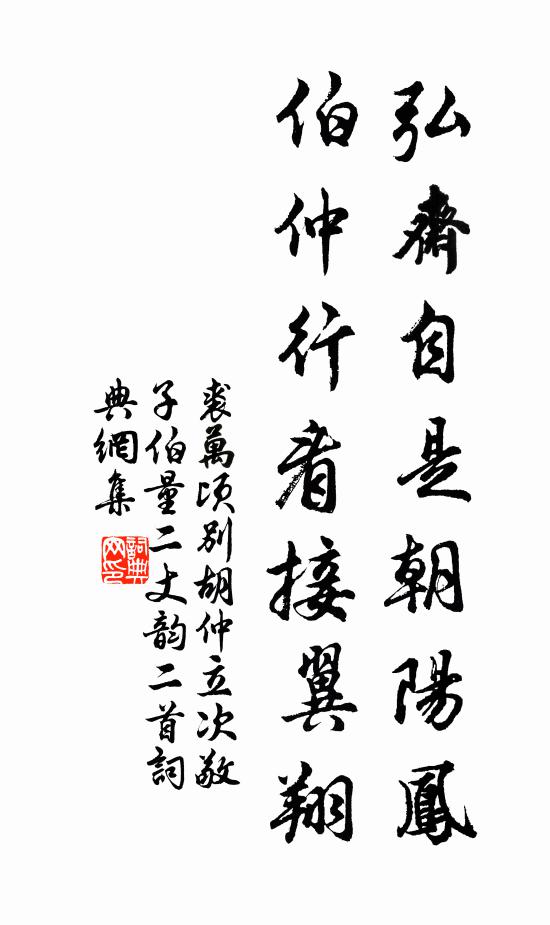 弘齋自是朝陽鳳
伯仲行看接翼翔
裘萬頃別胡仲立次敬
子伯量二丈韵二首詞
典網集
詞典
网印